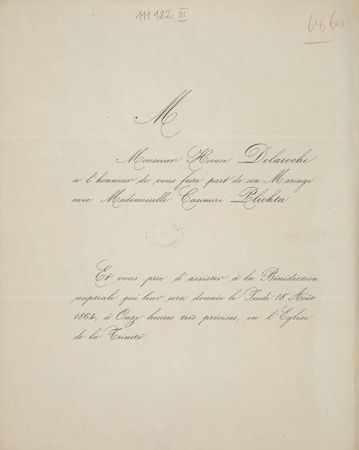 111182 III
1864
M
Monsieur Horace Delaroche
a l'honneur de vous faire part de son Mariage
avec Mademoiselle Casimire Plichta
Et vous prie d'assister à la Bénédiction
nuptiale qui leur sera donnée le Jeudi 18 Août
1864, à Onze heures très précises, en l'Eglise
de la Trinité